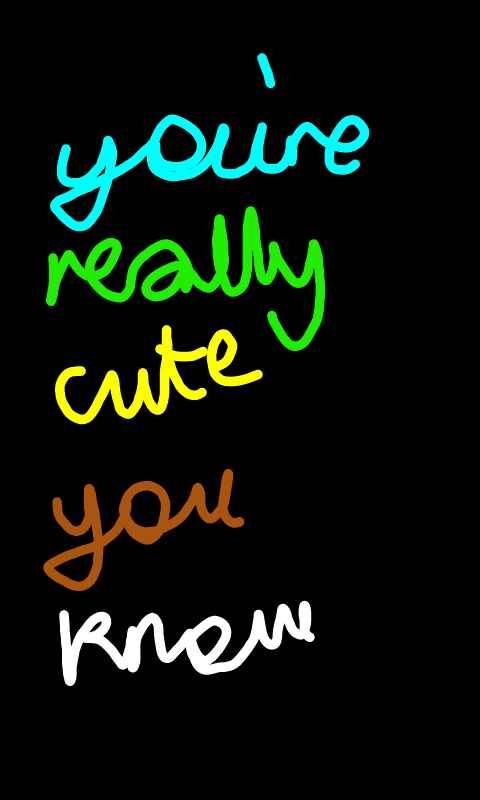 you're
really
cute
you
know